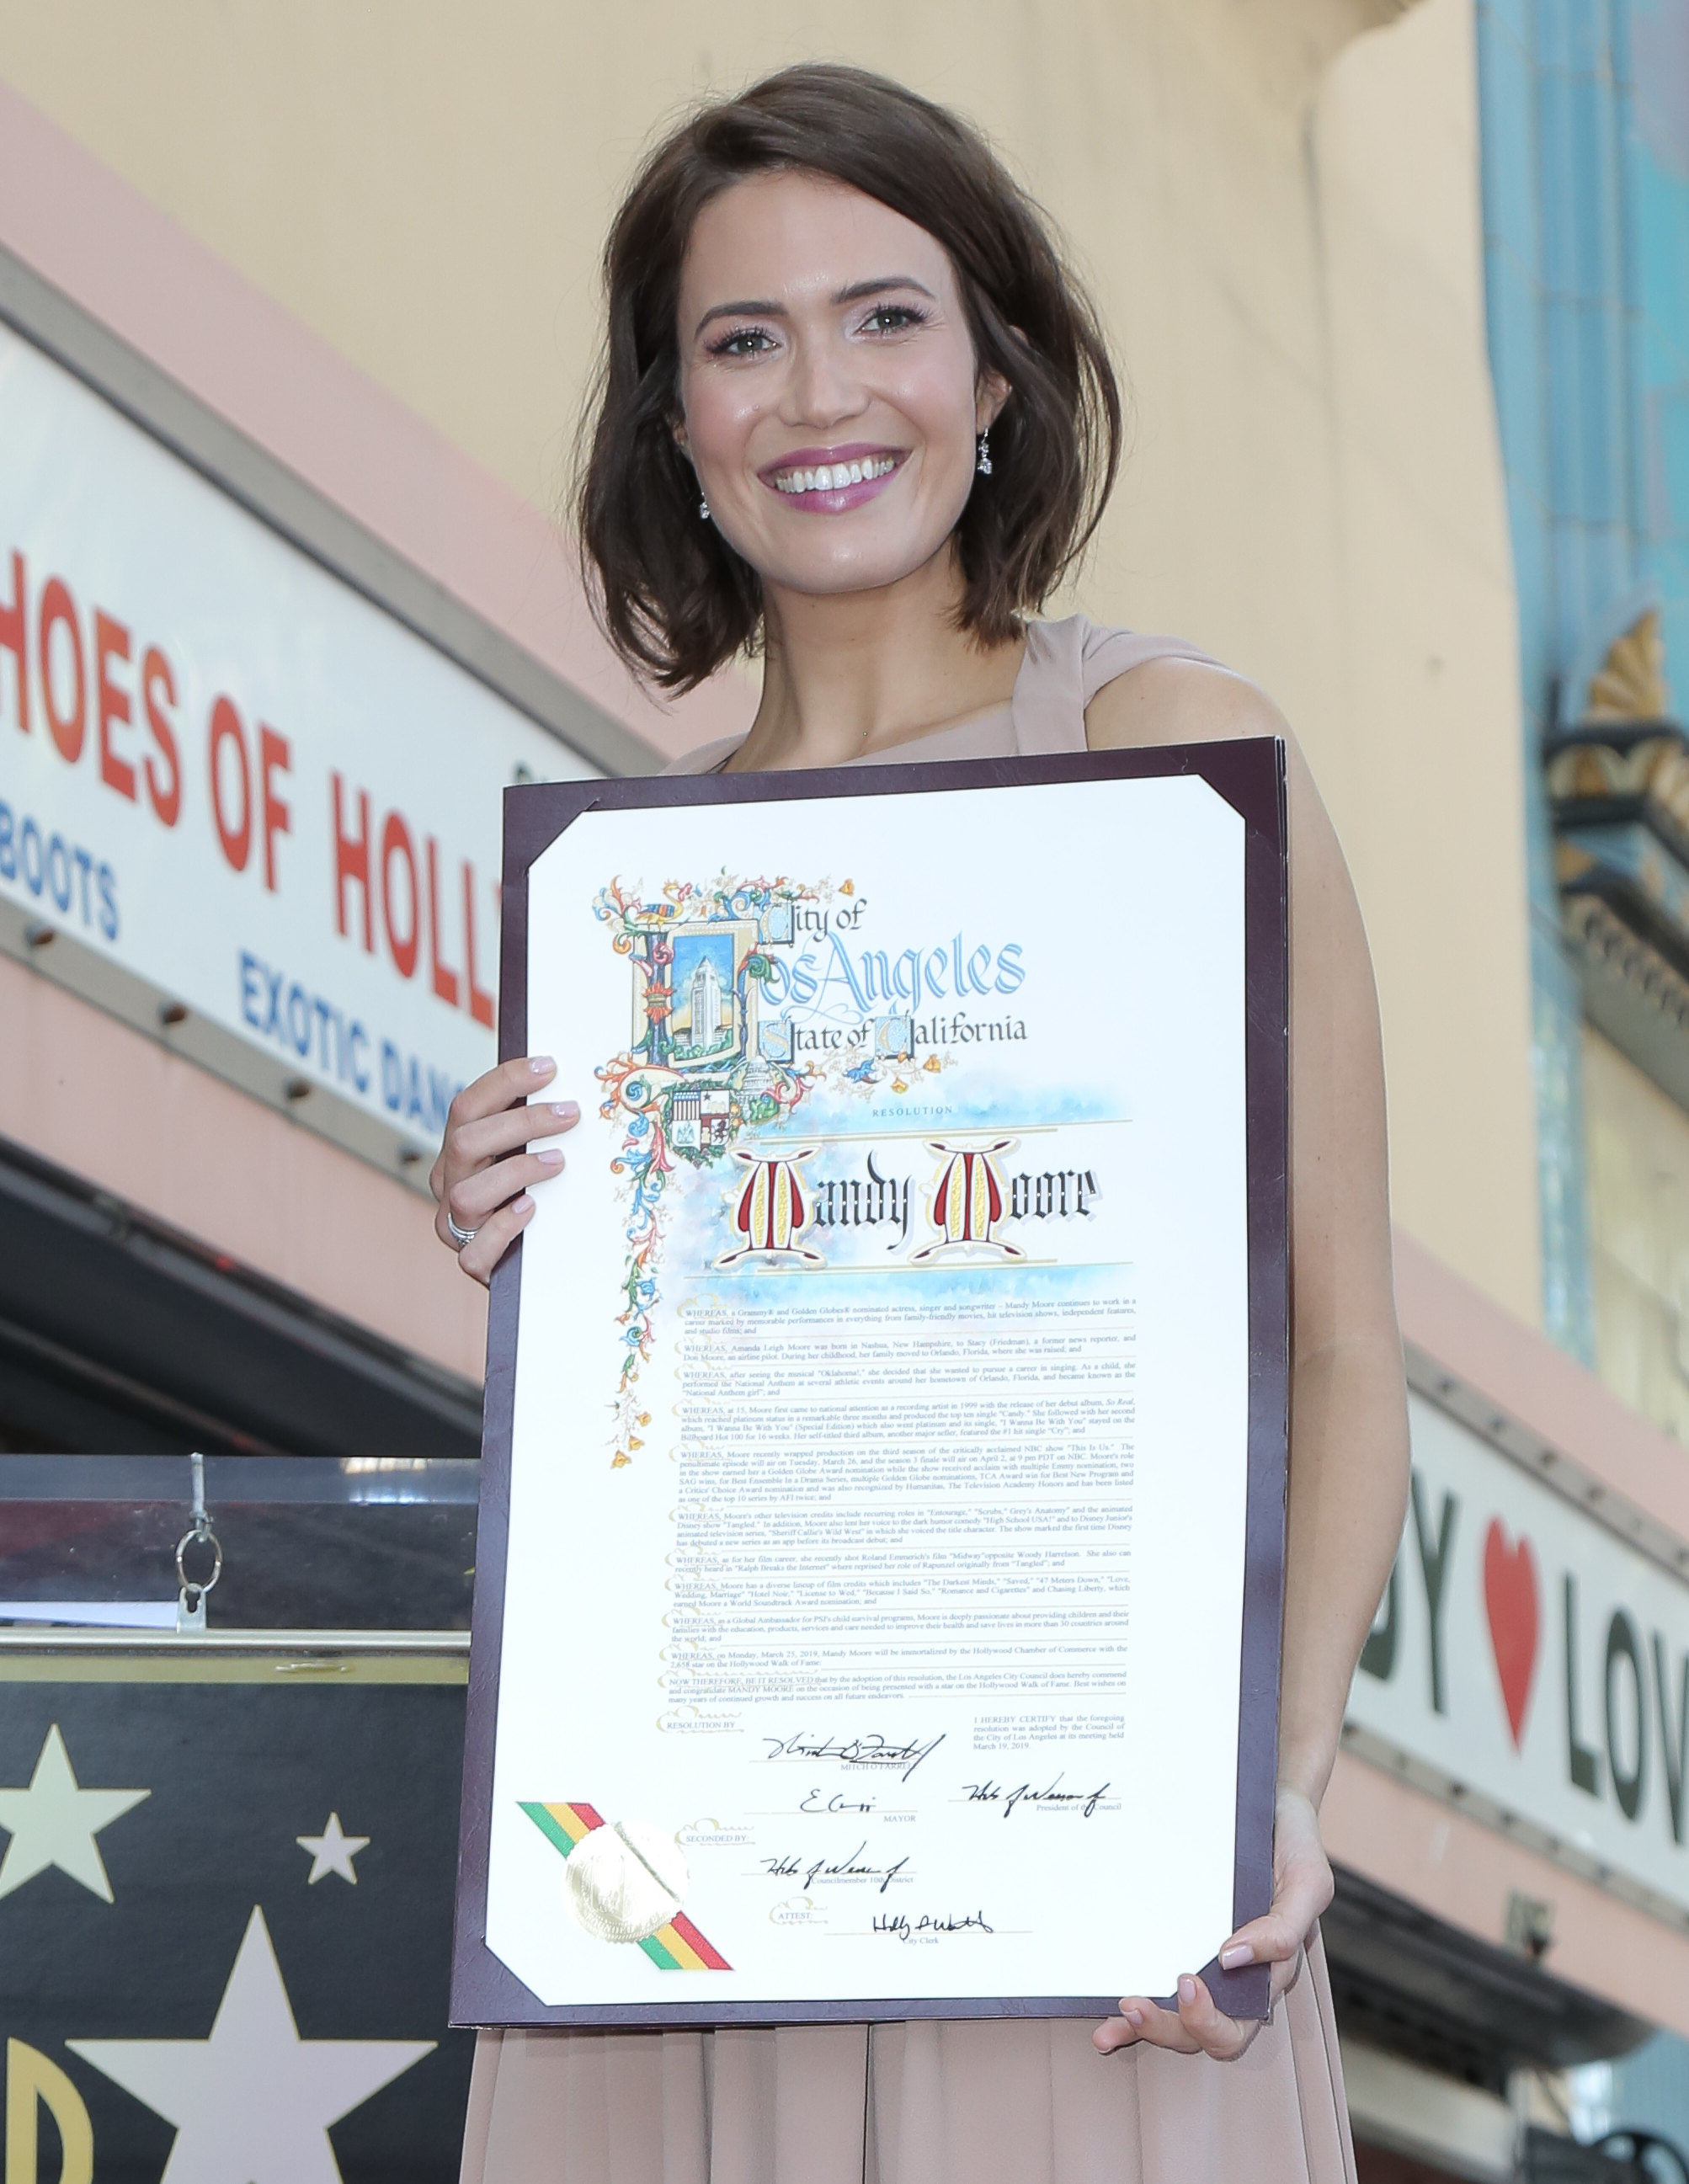 HOES OF HOLL
BOOTS
EXOTIC DAN
City of
Los Angeles
State of California
RESOLUTION
Mandy Moore
WHEREAS, a Grammy® and Golden Globes® nominated actress, singer and songwriter – Mandy Moore continues to work in a
career marked by memorable performances in everything from family-friendly movies, hit television shows, independent features,
and studio films; and
WHEREAS, Amanda Leigh Moore was born in Nashua, New Hampshire, to Stacy (Friedman), a former news reporter, and
Don Moore, an airline pilot. During her childhood, her family moved to Orlando, Florida, where she was raised; and
WHEREAS, after seeing the musical "Oklahoma!," she decided that she wanted to pursue a career in singing. As a child, she
performed the National Anthem at several athletic events around her hometown of Orlando, Florida, and became known as the
"National Anthem girl"; and
WHEREAS, at 15, Moore first came to national attention as a recording artist in 1999 with the release of her debut album, So Real,
which reached platinum status in a remarkable three months and produced the top ten single "Candy." She followed with her second
album, "I Wanna Be With You" (Special Edition) which also went platinum and its single, "I Wanna Be With You" stayed on the
Billboard Hot 100 for 16 weeks. Her self-titled third album, another major seller, featured the #1 hit single "Cry"; and
WHEREAS, Moore recently wrapped production on the third season of the critically acclaimed NBC show "This Is Us." The
penultimate episode will air on Tuesday, March 26, and the season 3 finale will air on April 2, at 9 pm PDT on NBC. Moore's role
in the show earned her a Golden Globe Award nomination while the show received acclaim with multiple Emmy nomination, two
SAG wins, for Best Ensemble In a Drama Series, multiple Golden Globe nominations, TCA Award win for Best New Program and
a Critics' Choice Award nomination and was also recognized by Humanitas, The Television Academy Honors and has been listed
as one of the top 10 series by AFI twice; and
WHEREAS, Moore's other television credits include recurring roles in "Entourage," "Scrubs," Grey's Anatomy" and the animated
Disney show "Tangled." In addition, Moore also lent her voice to the dark humor comedy "High School USA!" and to Disney Junior's
animated television series, "Sheriff Callie's Wild West" in which she voiced the title character. The show marked the first time Disney
has debuted a new series as an app before its broadcast debut; and
WHEREAS, as for her film career, she recently shot Roland Emmerich's film "Midway"opposite Woody Harrelson. She also can
recently heard in "Ralph Breaks the Internet" where reprised her role of Rapunzel originally from "Tangled"; and
WHEREAS, Moore has a diverse lineup of film credits which includes "The Darkest Minds," "Saved," "47 Meters Down," "Love,
Wedding, Marriage" "Hotel Noir," "License to Wed," "Because I Said So," "Romance and Cigarettes" and Chasing Liberty, which
earned Moore a World Soundtrack Award nomination; and
WHEREAS, as a Global Ambassador for PSI's child survival programs, Moore is deeply passionate about providing children and their
families with the education, products, services and care needed to improve their health and save lives in more than 30 countries around
the world; and
WHEREAS, on Monday, March 25, 2019, Mandy Moore will be immortalized by the Hollywood Chamber of Commerce with the
2,658 star on the Hollywood Walk of Fame.
NOW THEREFORE, BE IT RESOLVED that by the adoption of this resolution, the Los Angeles City Council does hereby commend
and congratulate MANDY MOORE on the occasion of being presented with a star on the Hollywood Walk of Fame. Best wishes on
many years of continued growth and success on all future endeavors.
RESOLUTION BY
MITCH O'FARRELL
I HEREBY CERTIFY that the foregoing
resolution was adopted by the Council of
the City of Los Angeles at its meeting held
March 19, 2019.
MAYOR
President of the Council
SECONDED BY:
Councilmember 10th District
ATTEST:
City Clerk
D
Y ♥ LOV